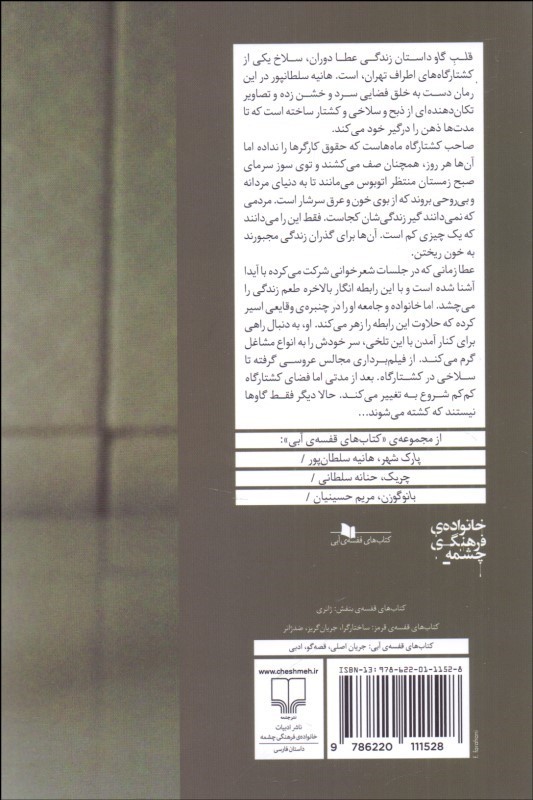 قلبِ گاو داستان زندگی عطا دوران، سلاخ یکی از
کشتارگاه‌های اطراف تهران، است. هانیه سلطانپور در این
رمان دست به خلق فضایی سرد و خشن زده و تصاویر
تکان‌دهنده‌ای از ذبح و سلاخی و کشتار ساخته است که تا
مدت‌ها ذهن را درگیر خود می‌کند.
صاحب کشتارگاه ماه‌هاست که حقوق کارگرها را نداده اما
آن‌ها هر روز، همچنان صف می‌کشند و توی سوز سرمای
صبح زمستان منتظر اتوبوس می‌مانند تا به دنیای مردانه
و بی‌روحی بروند که از بوی خون و عرق سرشار است. مردمی
که نمی‌دانند گیر زندگی‌شان کجاست. فقط این را می‌دانند
که یک چیزی کم است. آن‌ها برای گذران زندگی مجبورند
به خون ریختن.
عطا زمانی که در جلسات شعرخوانی شرکت می‌کرده با آیدا
آشنا شده است و با این رابطه انگار بالاخره طعم زندگی را
می‌چشد. اما خانواده و جامعه او را در چنبره‌ی وقایعی اسیر
کرده که حلاوت این رابطه را زهر می‌کند. او، به دنبال راهی
برای کنار آمدن با این تلخی، سر خودش را به انواع مشاغل
گرم می‌کند. از فیلم‌برداری مجالس عروسی گرفته تا
سلاخی در کشتارگاه. بعد از مدتی اما فضای کشتارگاه
کم‌کم شروع به تغییر می‌کند. حالا دیگر فقط گاوها
نیستند که کشته می‌شوند...
از مجموعه‌ی «کتاب‌های قفسه‌ی آبی»:
پارک شهر، هانیه سلطان‌پور /
چریک، حنانه سلطانی /
بانوگوزن، مریم حسینیان /
خانواده‌ی
فرهنگی
چشمه
کتاب‌های قفسه‌ی آبی
کتاب‌های قفسه‌ی بنفش: ژانری
کتاب‌های قفسه‌ی قرمز: ساختارگرا، جریان‌گریز، ضدژانر
کتاب‌های قفسه‌ی آبی: جریان اصلی، قصه‌گو، ادبی
www.cheshmeh.ir
نشرچشمه
ناشر ادبیات
خانواده‌ی فرهنگی چشمه
داستان فارسی
ISBN-13: 978-622-01-1152-8
9 786220 111528
f. farahani